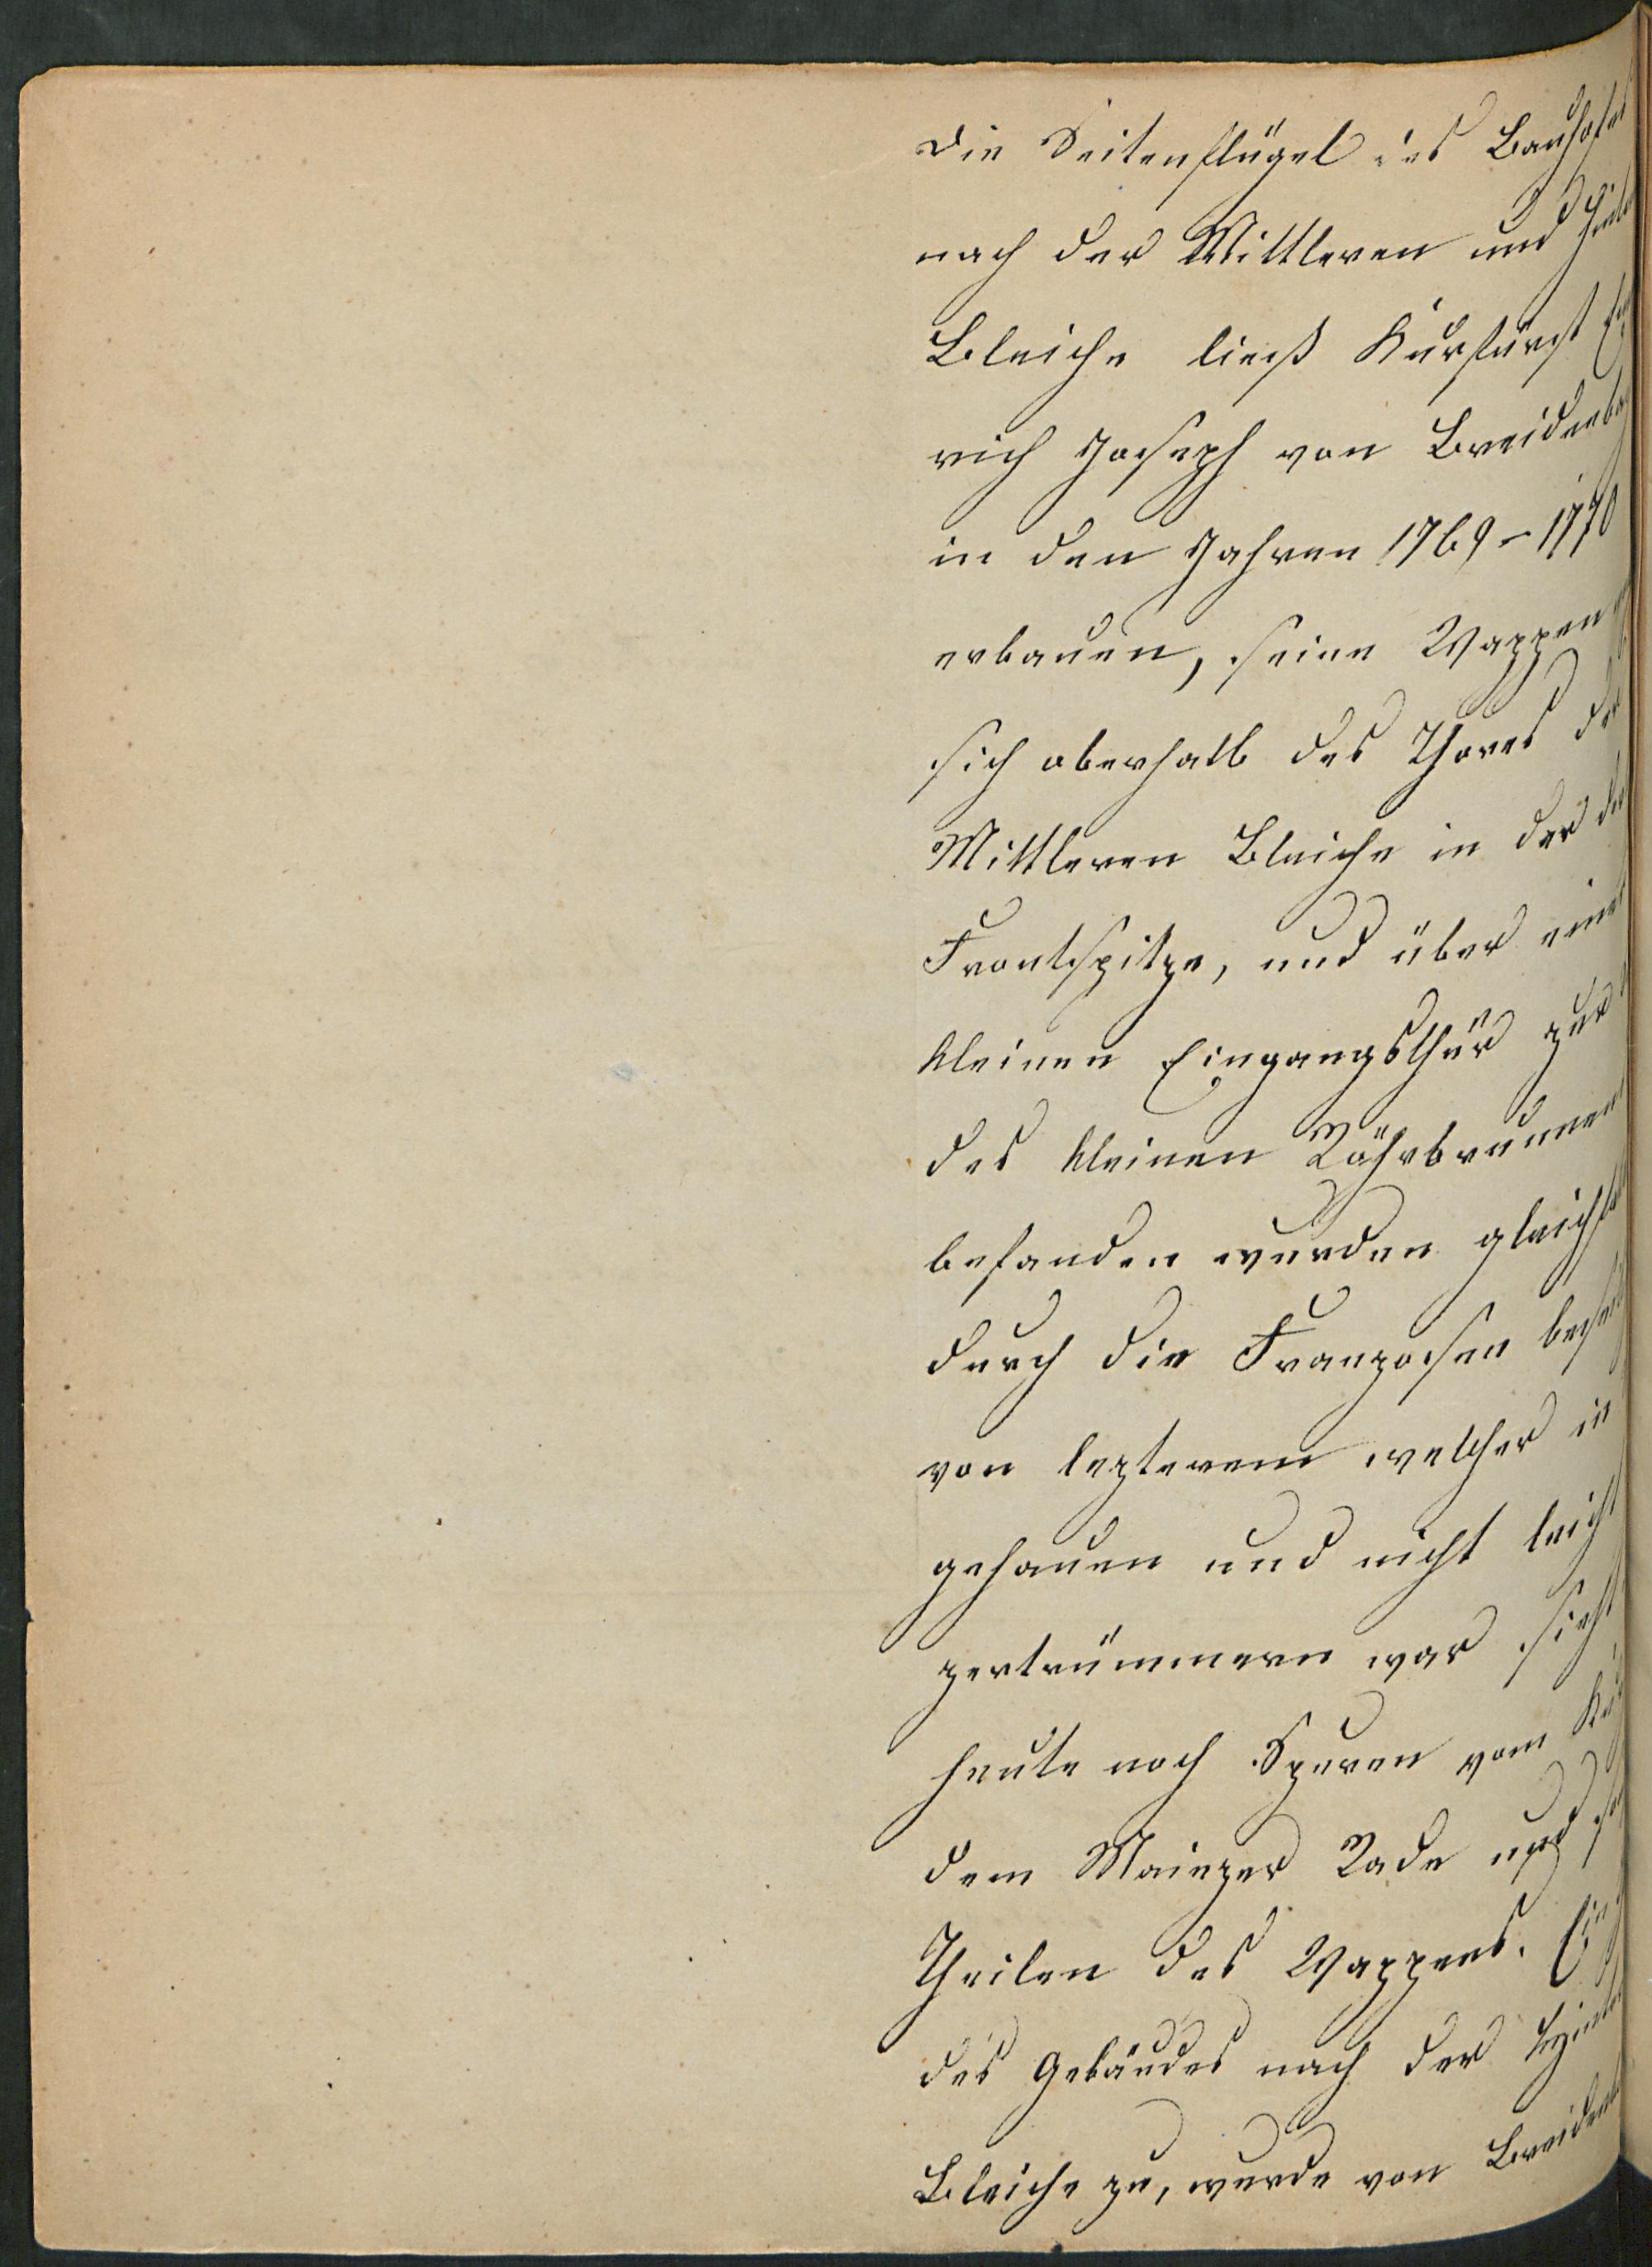 Die Seitenflügel des Bauhofes
nach der Mittleren und
Bleiche ließ Kurfürst
rich Joseph von Breidenba
in den Jahren 1769–1770
erbauen, seine Wappen
sich oberhalb des Thores der
Mittleren Bleiche in der
Frontspitze, und über einer
kleinen Eingangsthür zur
des kleinen Röhrbrunnen
befanden wurden gleichfa
durch die Franzosen besei
von lezterem welcher in
gehauen und nicht leicht
zertrümmern war sieht
heute noch Spuren vom
dem Mainzer Rade und
Theilen des Wappens.
des Gebäudes nach der
Bleiche zu, wurde von Breidenb